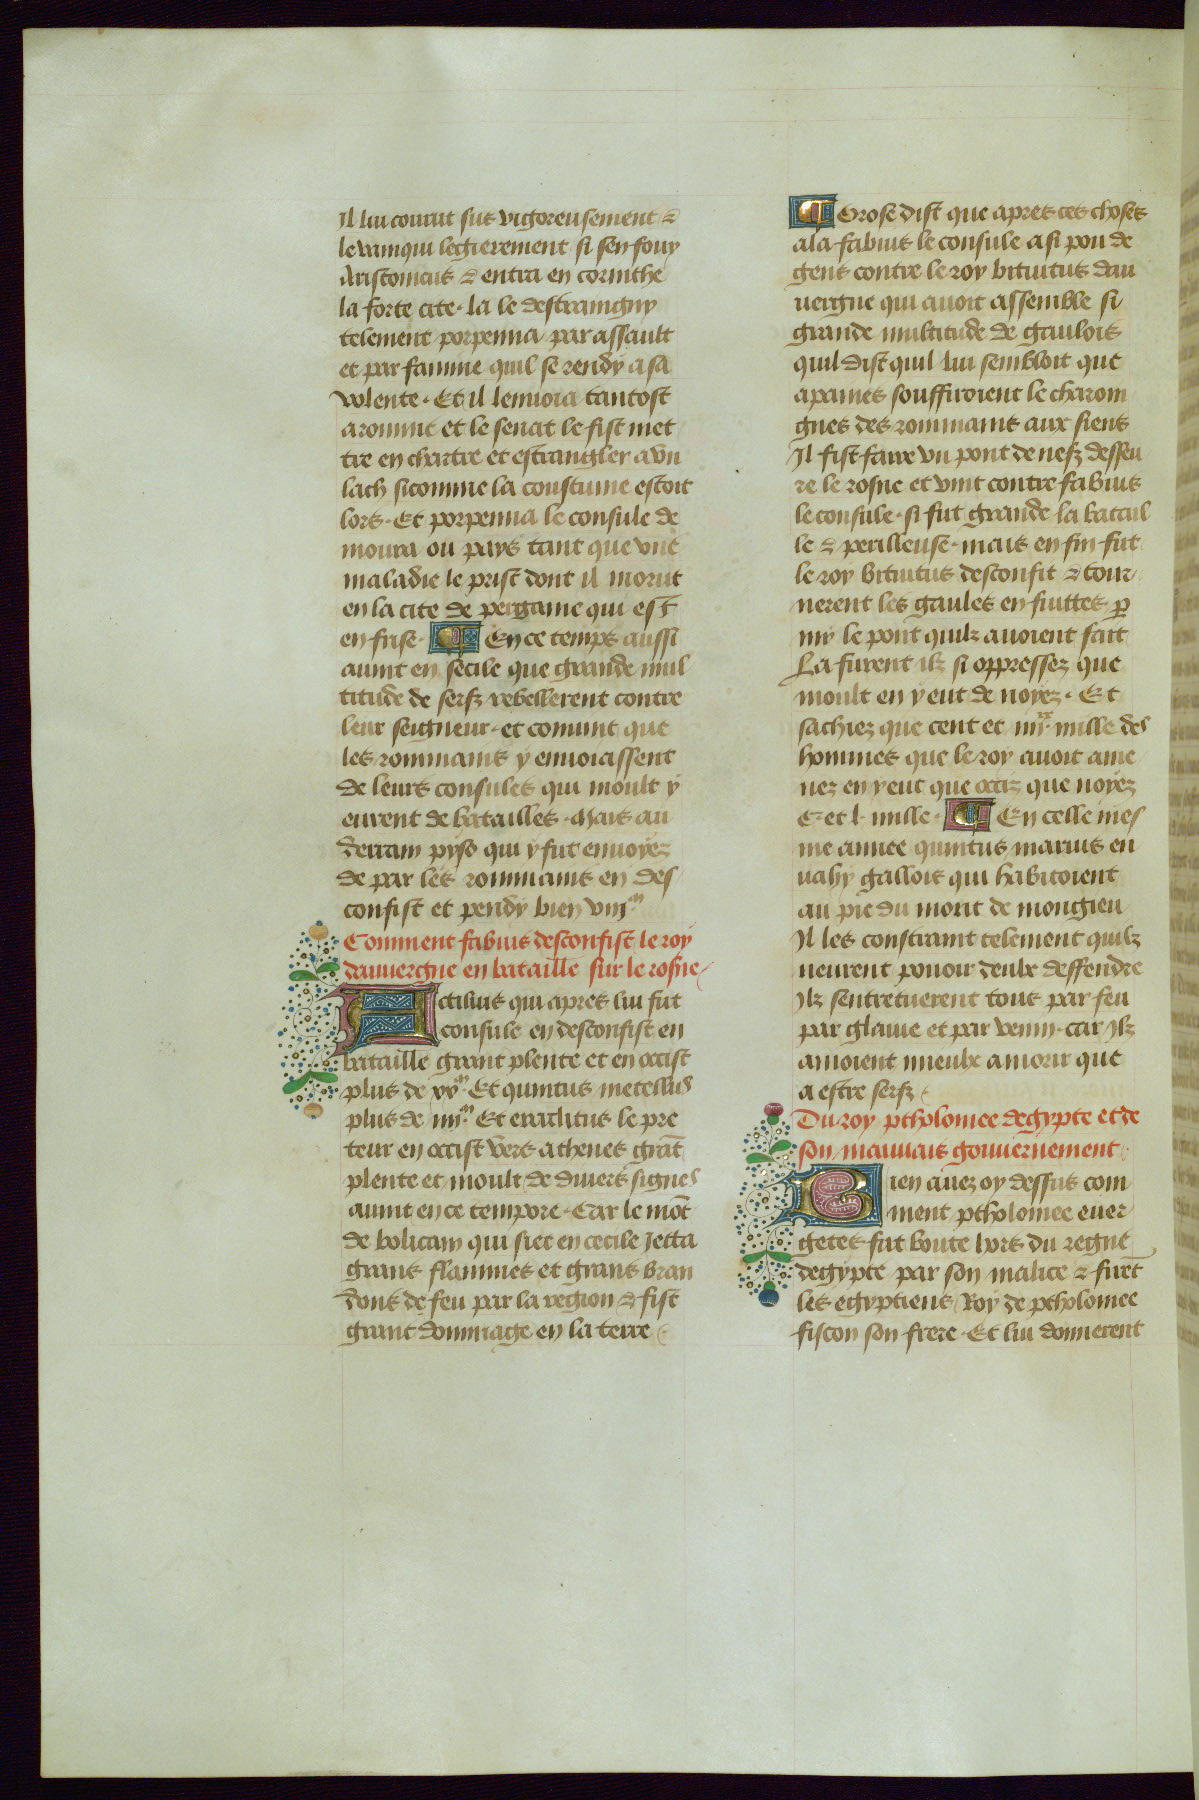 Il lui courut sus vigoreusement &
le vainqui legierement si sen fouy
Aristonicus & entra en corinthe
la forte cite. la le destraingny
telement porpenna par assault
et par famine quil se rendy a sa
volente. Et il lenuoia tantost
a romme et le senat le fist met
tre en chartre et estrangler a vn
lach sicomme la coustume estoit
lors. Et porpenna le consule de
moura ou pays tant que vne
maladie le prist dont il morut
en la cite de pergame qui est
en frise. ¶ En ce temps aussi
auint en secile que grande mul
titude de serfz rebellerent contre
leur seigneur. et conuint que
les rommains y enuoiassent
de leurs consules qui moult y
eurent de batailles. Mais au
derrain pyso qui y fut enuoyez
de par les rommains en des
confist et pendy bien viij.m
Comment fabius desconfist le roy
dauuergne en bataille sur le rosne
Actilius qui apres lui fut
consule en desconfist en
bataille grant plente et en occist
plus de xx.m Et quintus metellus
plus de iiij.m Et eraclitus le pre
teur en occist vers athenes grāt
plente et moult de diuers signes
auint en ce tempore. Car le mōt
de bolicain qui siet en cecile Jetta
grans flammes et grans bran
dons de feu par la region & fist
grant dommage en la terre
¶ Orose dist que apres ces choses
ala fabius le consule a si pou de
gens contre le roy bituitus dau
uergne qui auoit assemble si
grande multitude de gaulois
quil dist quil lui sembloit que
a paines souffiroient le charom
gnes des rommains aux siens
Il fist faire vn pont de nefz desseu
re le rosne et vint contre fabius
le consule. si fut grande la batail
le & perilleuse. mais en fin fut
le roy bituitus desconfit & tour
nerent les gaules en fuittes ꝑ
my le pont quilz auoient fait
La furent ilz si oppressez que
moult en y eut de noyez. Et
sachiez que cent et iiij.xx mille des
hommes que le roy auoit ame
nez en y eut que occiz que noyez
C et l. mille. ¶ En celle mes
me annee quintus marius en
vahy gallois qui habitoient
au pie du mont de mongieu
Il les constraint telement quilz
neurent pouoir deulx deffendre
Ilz sentretuerent tous par feu
par glaiue et par venin. car Ilz
amoient mieulx a morir que
a estre serfz
Du roy ptholomee degypte et de
son mauuais gouuernement
Bien auez oy dessus com
ment ptholomee euer
getes fut boute hors du regne
degypte par son malice & firēt
les egyptiens Roy de ptholomee
fiscon son frere. Et lui donnerent